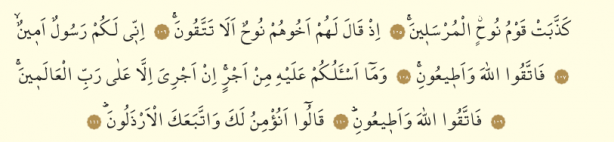 كَذَّبَتْ قَوْمُ نُوحٍۨ الْمُرْسَل۪ينَۚ ﴿١٠٥﴾ اِذْ قَالَ لَهُمْ اَخُوهُمْ نُوحٌ اَلَا تَتَّقُونَۚ ﴿١٠٦﴾ اِنّ۪ي لَكُمْ رَسُولٌ اَم۪ينٌۙ
﴿١٠٧﴾ فَاتَّقُوا اللّٰهَ وَاَط۪يعُونِۚ ﴿١٠٨﴾ وَمَٓا اَسْـَٔلُكُمْ عَلَيْهِ مِنْ اَجْرٍۚ اِنْ اَجْرِيَ اِلَّا عَلٰى رَبِّ الْعَالَم۪ينَۚ
﴿١٠٩﴾ فَاتَّقُوا اللّٰهَ وَاَط۪يعُونِۜ ﴿١١٠﴾ قَالُٓوا اَنُؤْمِنُ لَكَ وَاتَّبَعَكَ الْاَرْذَلُونَۜ ﴿١١١﴾